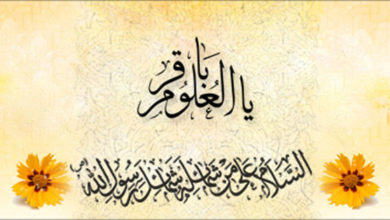 یا باقر العلوم
السلام علی من شمائله کشمائل رسول الله